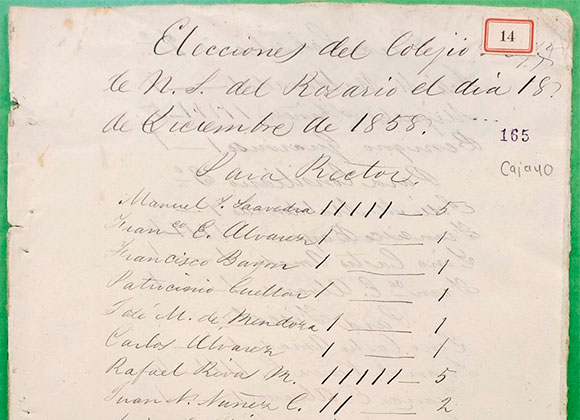 14
Elecciones del Colejio
de N. S. del Rosario el dia 18
de Diciembre de 1858.
165
Cajayo
Para Rector.
Manuel J. Saavedra 11111 — 5
Fran.co E. Alvarez 1 — 1
Francisco Bayon 1 — 1
Patrocinio Cuellar 1 — 1
José M. de Mendoza 1 — 1
Carlos Alvarez 1 — 1
Rafael Rivas M. 11111 — 5
Juan N. Nuñez C. 11 — 2